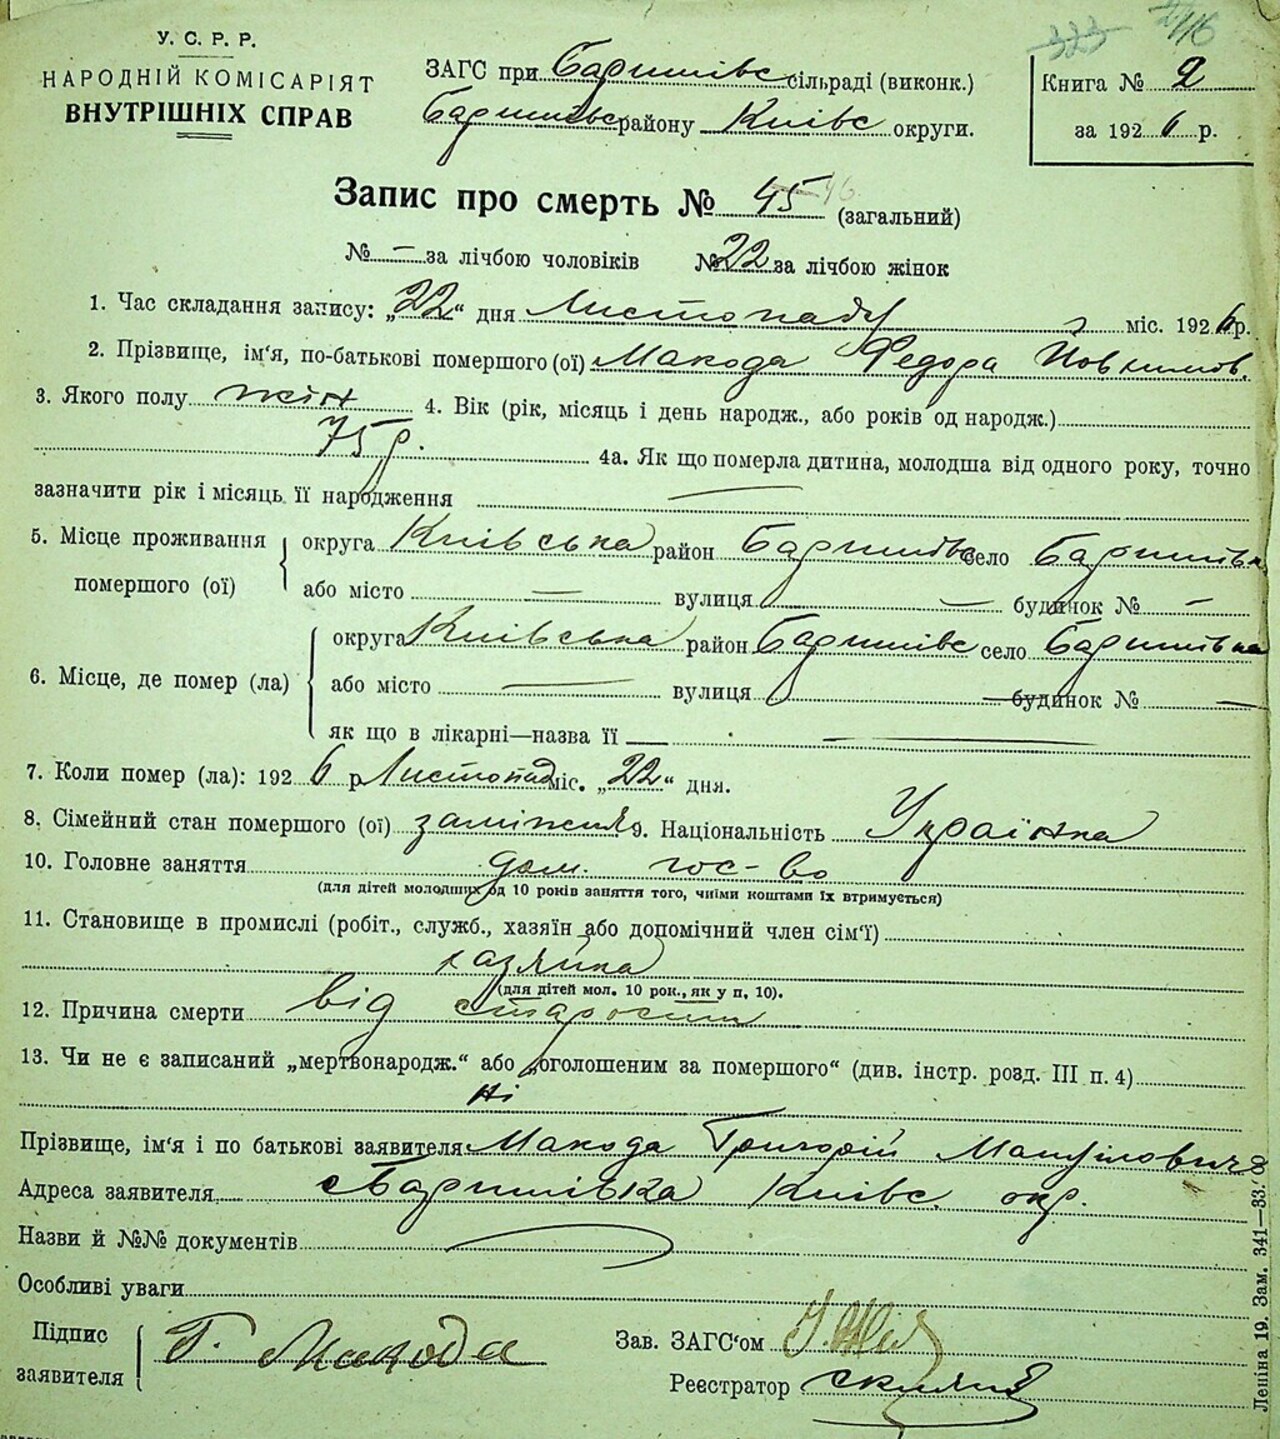 У. С. Р. Р.
НАРОДНІЙ КОМІСАРІЯТ
ВНУТРІШНІХ СПРАВ
ЗАГС при Баришівс сільраді (виконк.)
Баришівс району Київс округи.
323
Книга № 2
за 1926 р.
Запис про смерть № 45 46 (загальний)
№ — за лічбою чоловіків № 22 за лічбою жінок
1. Час складання запису: „22“ дня Листопаду міс. 1926 р.
2. Прізвище, ім'я, по-батькові помершого (ої) Макода Федора Йовхимов.
3. Якого полу жін 4. Вік (рік, місяць і день народж., або років од народж.)
75 р. 4а. Як що померла дитина, молодша від одного року, точно
зазначити рік і місяць її народження —
5. Місце проживання помершого (ої) округа Київська район Баришівс село Баришівка
або місто — вулиця — будинок № —
6. Місце, де помер (ла) округа Київська район Баришівс село Баришівка
або місто — вулиця — будинок № —
як що в лікарні—назва її —
7. Коли помер (ла): 1926 р Листопад міс. „22“ дня.
8. Сімейний стан помершого (ої) заміжня 9. Національність Українка
10. Головне заняття дом. гос-во
(для дітей молодших од 10 років заняття того, чиїми коштами їх втримується)
11. Становище в промислі (робіт., служб., хазяїн або допомічний член сім'ї)
хазяйка
(для дітей мол. 10 рок., як у п. 10).
12. Причина смерти від старости
13. Чи не є записаний „мертвонародж.“ або „оголошеним за помершого“ (див. інстр. розд. III п. 4)
Ні
Прізвище, ім'я і по батькові заявителя Макода Григорій Мануілович
Адреса заявителя Баришівка Київс. окр.
Назви й №№ документів
Особливі уваги
Підпис заявителя Г. Макода
Зав. ЗАГС'ом
Реєстратор
Леніна 19. Зам. 341—33.'00